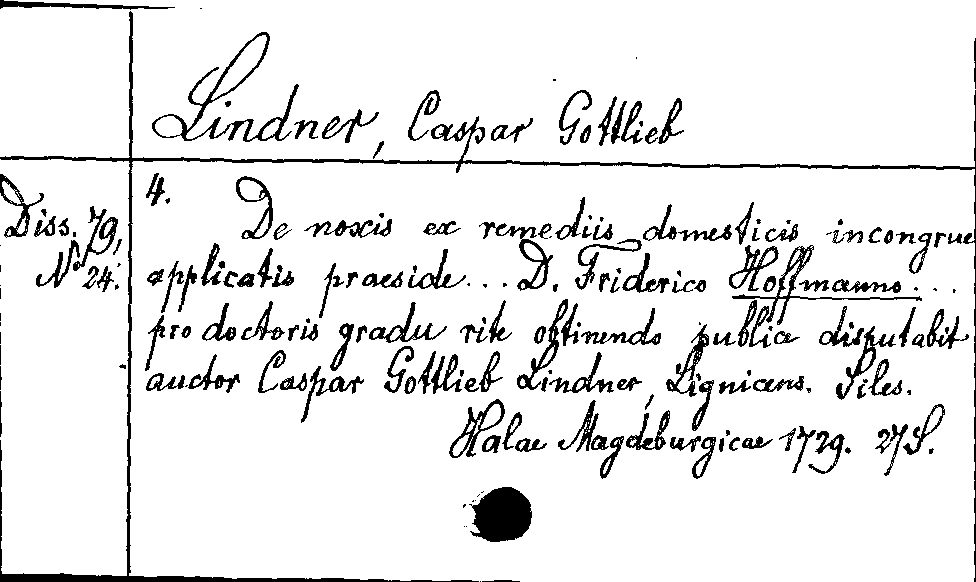 Lindner, Caspar Gottlieb
Diss. 79,
No 24.
4.
De noxis ex remediis domesticis incongrue
applicatis praeside... D. Friderico Hoffmanno...
pro doctoris gradu rite obtinendo publice disputabit
auctor Caspar Gottlieb Lindner, Lignicens. Siles.
Halae Magdeburgicae 1729. 27 S.